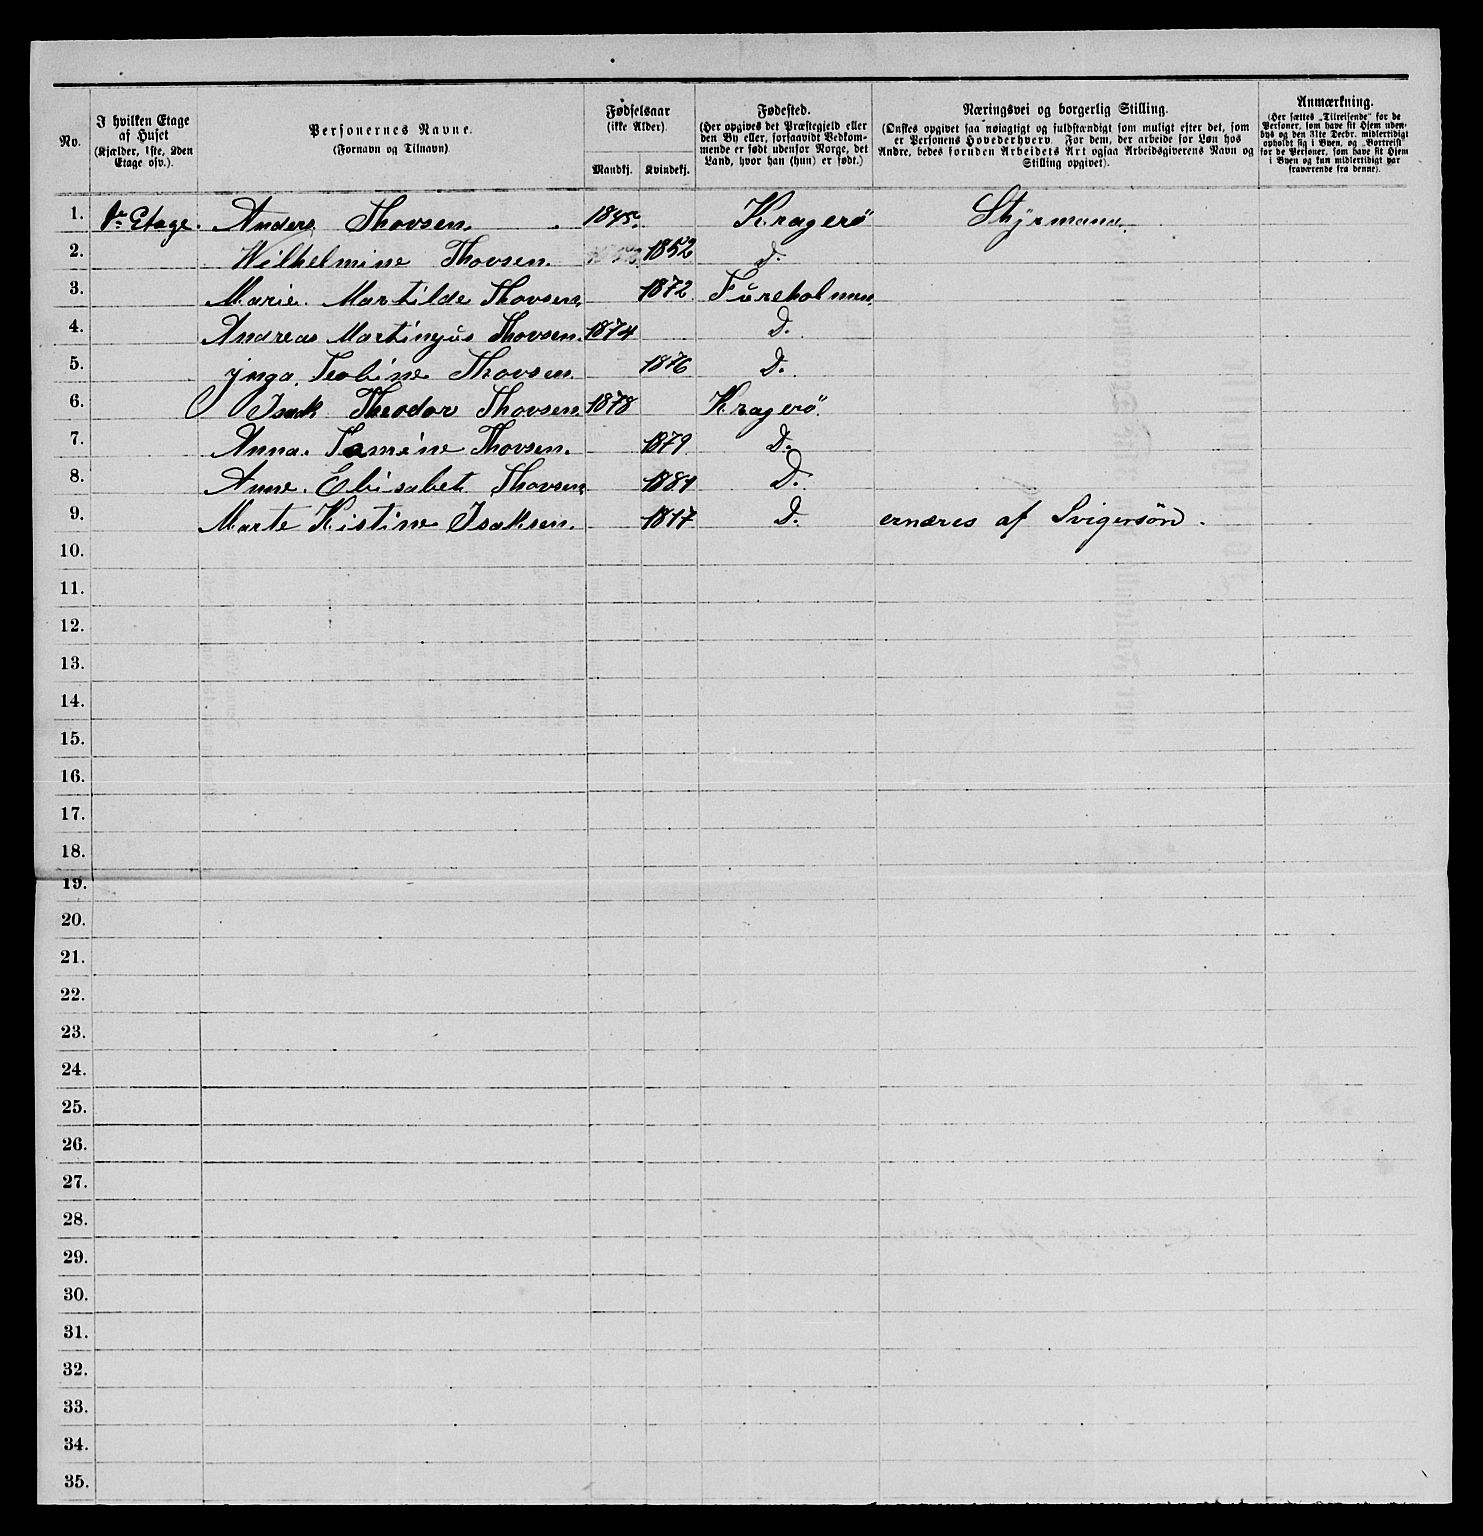 No. I hvilken Etage af Huset (Kjælder, 1ste, 2den Etage osv.). Personernes Navne. (Fornavn og Tilnavn). Fødselsaar (ikke Alder). Mandkj. Kvindekj. Fødested. (Her opgives det Præstegjeld eller den By eller, forsaavidt Vedkommende er født udenfor Norge, det Land, hvor han (hun) er født.) Næringsvei og borgerlig Stilling. (Ønskes opgivet saa nøiagtigt og fuldstændigt som muligt efter det, som er Personens Hovederhverv. For dem, der arbeide for Løn hos Andre, bedes foruden Arbeidets Art ogsaa Arbeidsgiverens Navn og Stilling opgivet). Anmærkning. (Her sættes „Tilreisende“ for de Personer, som have sit Hjem udenbys og den 31te Decbr. midlertidigt opholdt sig i Byen, og „Bortreist“ for de Personer, som have sit Hjem i Byen og kun midlertidigt var fraværende fra denne).
1. 1ste Etage. Anders Thovsen. 1845. Kragerö Styrmand.
2. Wilhelmine Thovsen. 1852 D.
3. Marie. Martilde Thovsen. 1872 Fureholmen.
4. Andreas Martinyus Thovsen. 1874 D.
5. Ynga. Teoline Thovsen. 1876 D.
6. Isak Theodor Thovsen. 1878 Kragerö.
7. Anna. Tomine Thovsen. 1879 D.
8. Anne. Elisabet Thovsen 1881 D.
9. Marte Kistine Isaksen. 1817 D. ernæres af Svigersøn.
10.
11.
12.
13.
14.
15.
16.
17.
18.
19.
20.
21.
22.
23.
24.
25.
26.
27.
28.
29.
30.
31.
32.
33.
34.
35.